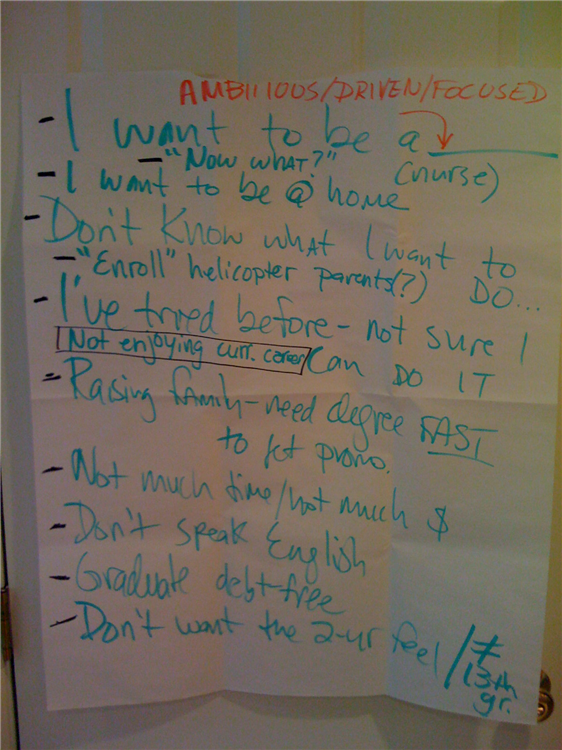 AMBITIOUS/DRIVEN/FOCUSED
- I want to be a ____
- "Now what?"
(nurse)
- I want to be @ home
- Don't Know what I want to
DO...
- "Enroll" helicopter parents(?)
- I've tried before - not sure I
Not enjoying curr. career
Can DO IT
- Raising family - need degree FAST
to get promo.
- Not much time/not much $
- Don't speak English
- Graduate debt-free
- Don't want the 2-yr feel / ≠
13th
gr.